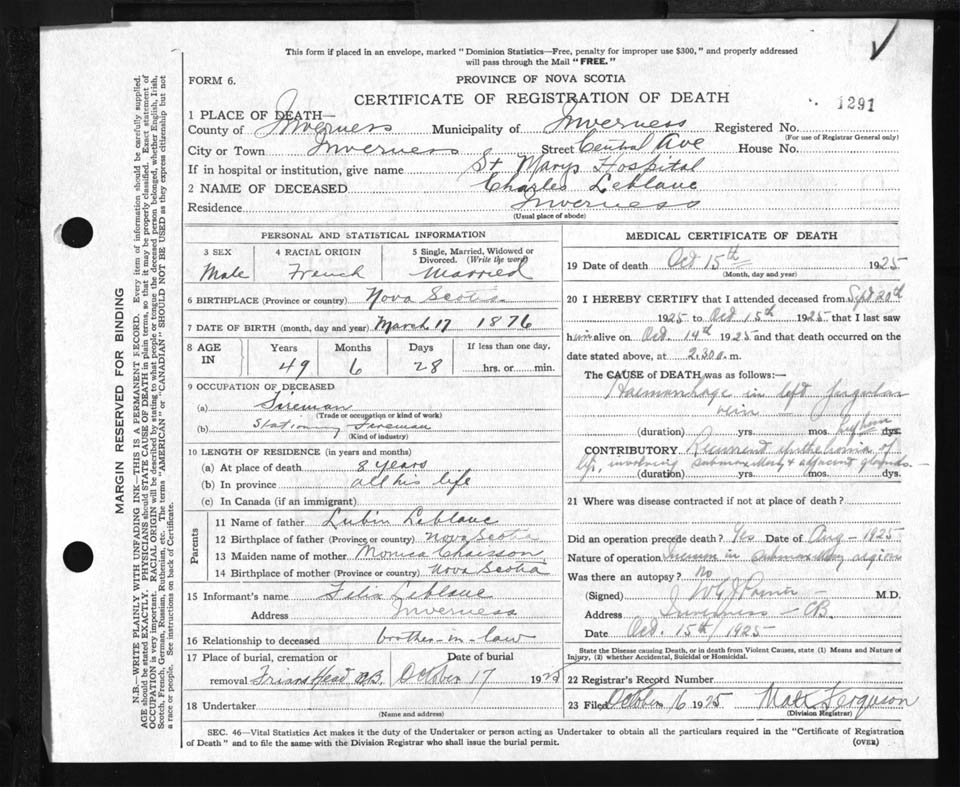 This form if placed in an envelope, marked "Dominion Statistics—Free, penalty for improper use $300," and properly addressed
will pass through the Mail "FREE."
FORM 6.
PROVINCE OF NOVA SCOTIA
CERTIFICATE OF REGISTRATION OF DEATH
1291
1 PLACE OF DEATH—
County of Inverness Municipality of Inverness Registered No.
(For use of Registrar General only)
City or Town Inverness Street Central Ave House No.
If in hospital or institution, give name St Marys Hospital
2 NAME OF DECEASED Charles Leblanc
Residence Inverness
(Usual place of abode)
PERSONAL AND STATISTICAL INFORMATION
3 SEX Male
4 RACIAL ORIGIN French
5 Single, Married, Widowed or Divorced. (Write the word) Married
6 BIRTHPLACE (Province or country) Nova Scotia
7 DATE OF BIRTH (month, day and year) March 17 1876
8 AGE IN Years 49 Months 6 Days 28 If less than one day, hrs. or min.
9 OCCUPATION OF DECEASED
(a) Fireman
(Trade or occupation or kind of work)
(b) Stationary Fireman
(Kind of industry)
10 LENGTH OF RESIDENCE (in years and months)
(a) At place of death 8 years
(b) In province all his life
(c) In Canada (if an immigrant)
Parents
11 Name of father Lubin Leblanc
12 Birthplace of father (Province or country) Nova Scotia
13 Maiden name of mother Monica Chaisson
14 Birthplace of mother (Province or country) Nova Scotia
15 Informant's name Felix Leblanc
Address Inverness
16 Relationship to deceased brother-in-law
17 Place of burial, cremation or Date of burial
removal Friars Head C.B. October 17 1925
18 Undertaker
(Name and address)
MEDICAL CERTIFICATE OF DEATH
19 Date of death Oct 15th 1925
(Month, day and year)
20 I HEREBY CERTIFY that I attended deceased from Sept 20th
1925 to Oct 15th 1925 that I last saw
him alive on Oct. 14th 1925 and that death occurred on the
date stated above, at 2.30 a. m.
The CAUSE of DEATH was as follows:—
Haemorrhage in left Jugular
vein
(duration) yrs. mos. dys.
CONTRIBUTORY Recurrent epithelioma of
lip, involving submaxillary & adjacent glands
(duration) yrs. mos. dys.
21 Where was disease contracted if not at place of death?
Did an operation precede death? Yes Date of Aug - 1925
Nature of operation Incision in submaxillary region
Was there an autopsy? No
(Signed) M.D.
Address Inverness - CB.
Date Oct. 15th / 1925
State the Disease causing Death, or in death from Violent Causes, state (1) Means and Nature of
Injury, (2) whether Accidental, Suicidal or Homicidal.
22 Registrar's Record Number
23 Filed October 16 1925 Matt Ferguson
(Division Registrar)
SEC. 46—Vital Statistics Act makes it the duty of the Undertaker or person acting as Undertaker to obtain all the particulars required in the "Certificate of Registration
of Death" and to file the same with the Division Registrar who shall issue the burial permit.
(OVER)
MARGIN RESERVED FOR BINDING
N.B.—WRITE PLAINLY WITH UNFADING INK—THIS IS A PERMANENT RECORD. Every item of information should be carefully supplied.
AGE should be stated EXACTLY. PHYSICIANS should STATE CAUSE OF DEATH in plain terms, so that it may be properly classified. Exact statement of
OCCUPATION is very important. RACIAL ORIGIN will be described by stating to what people or tongue the deceased person belonged, whether English, Irish,
Scotch, French, German, Russian, Ruthenian, etc. The terms "AMERICAN" or "CANADIAN" SHOULD NOT BE USED as they express citizenship but not
a race or people. See instructions on back of Certificate.